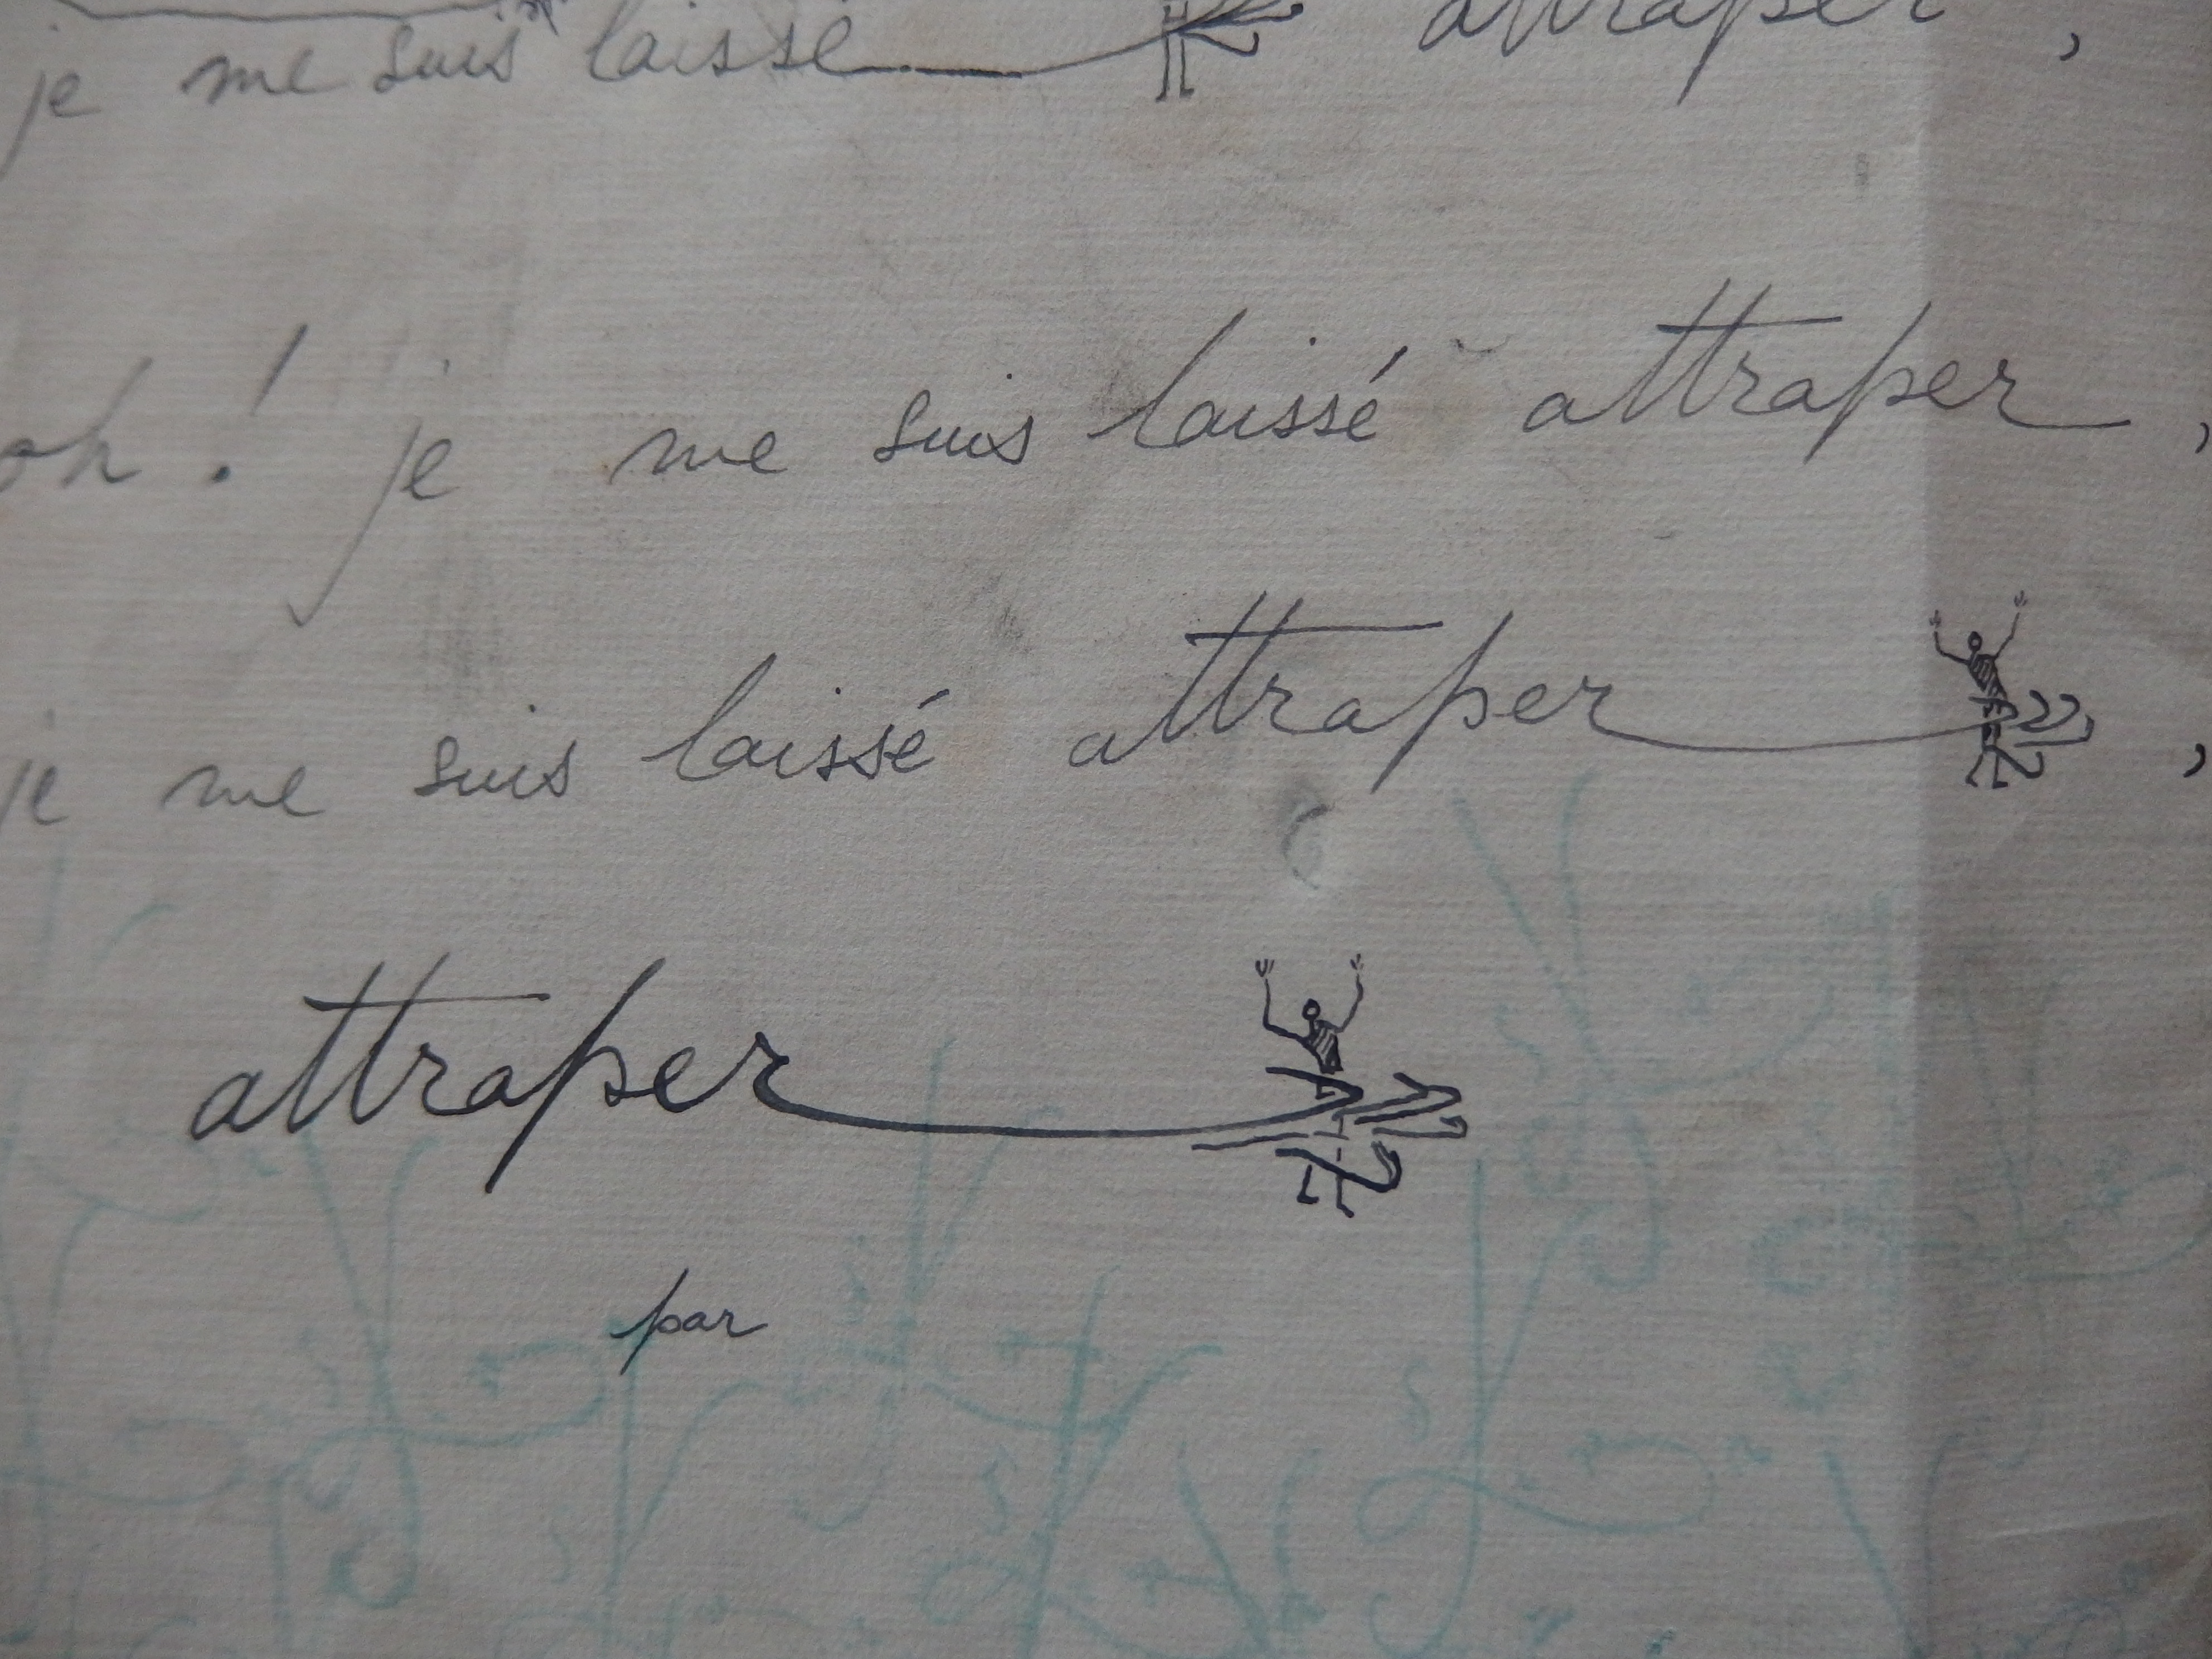 je me suis laissé attraper,
oh! je me suis laissé attraper,
je me suis laissé attraper,
attraper
par